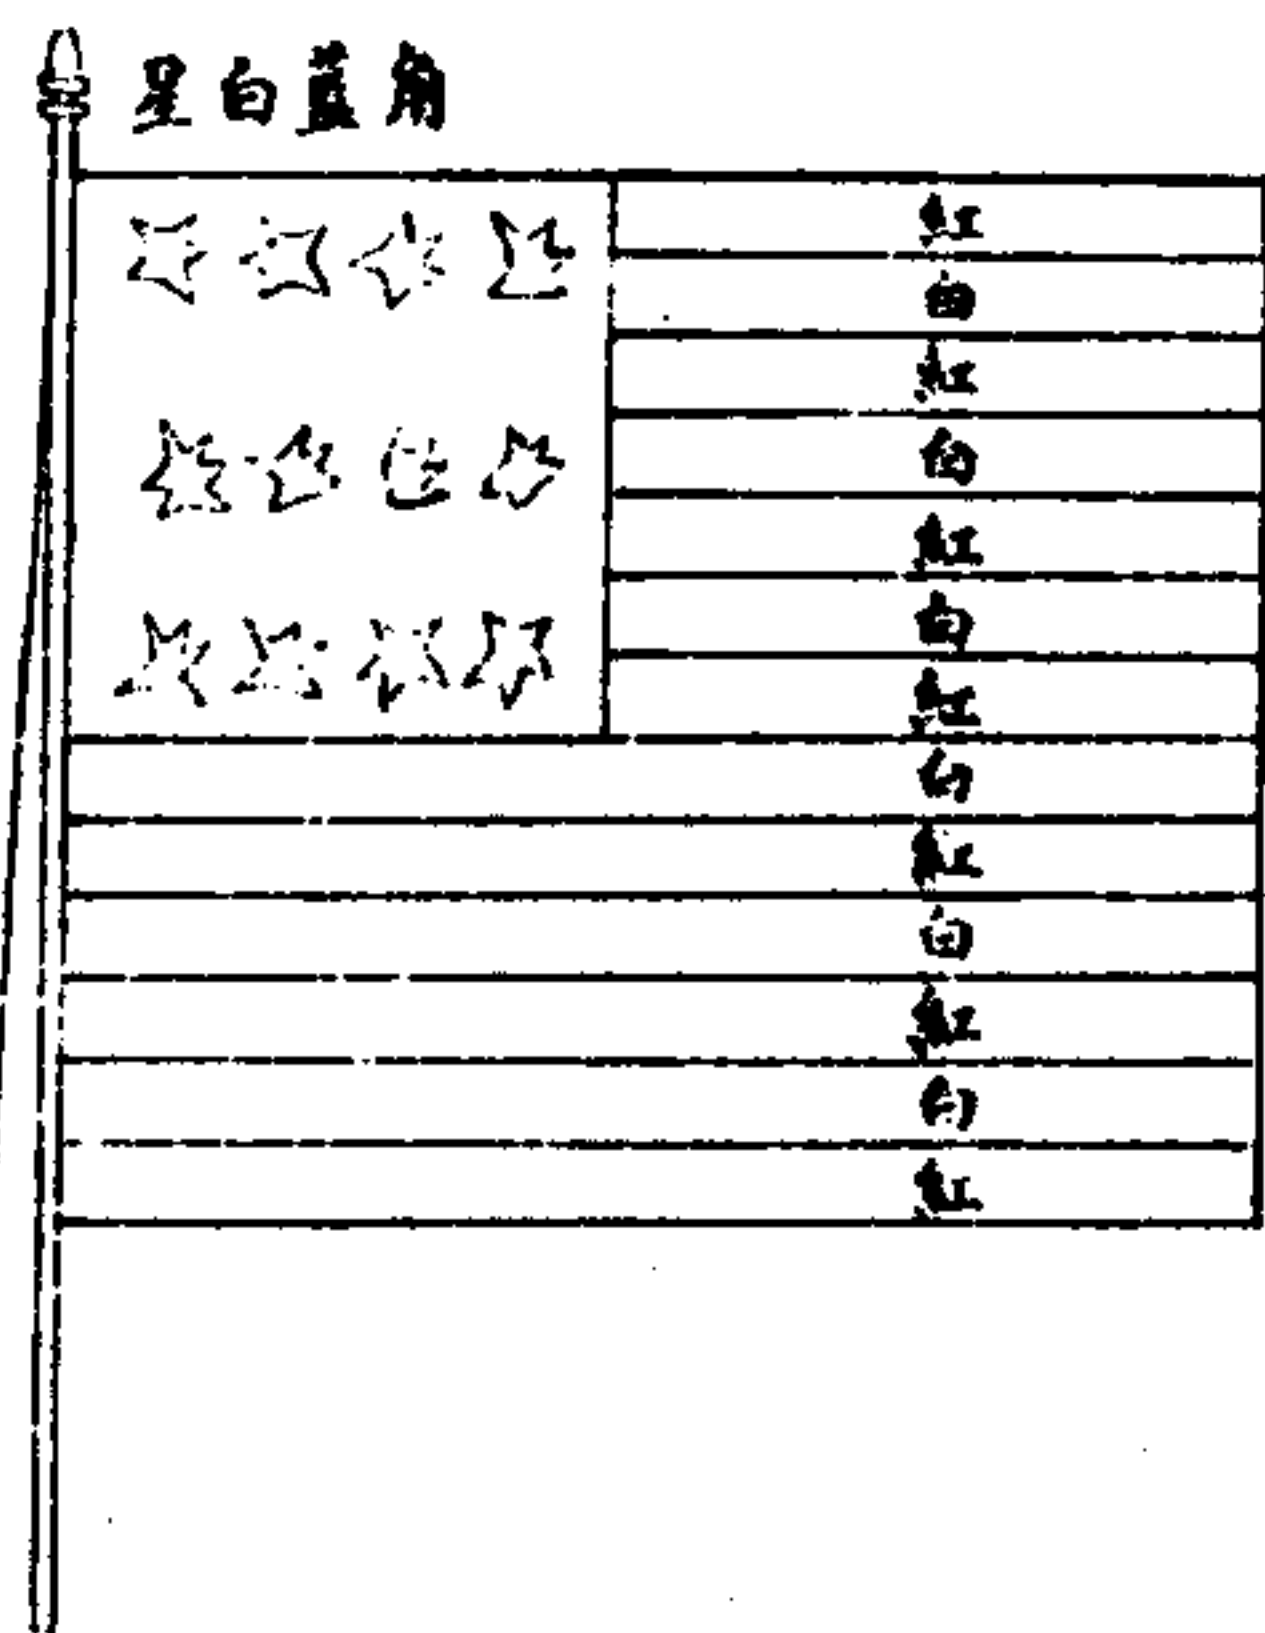 星白蓝角
紅
白
紅
白
紅
白
紅
白
紅
白
紅
白
紅